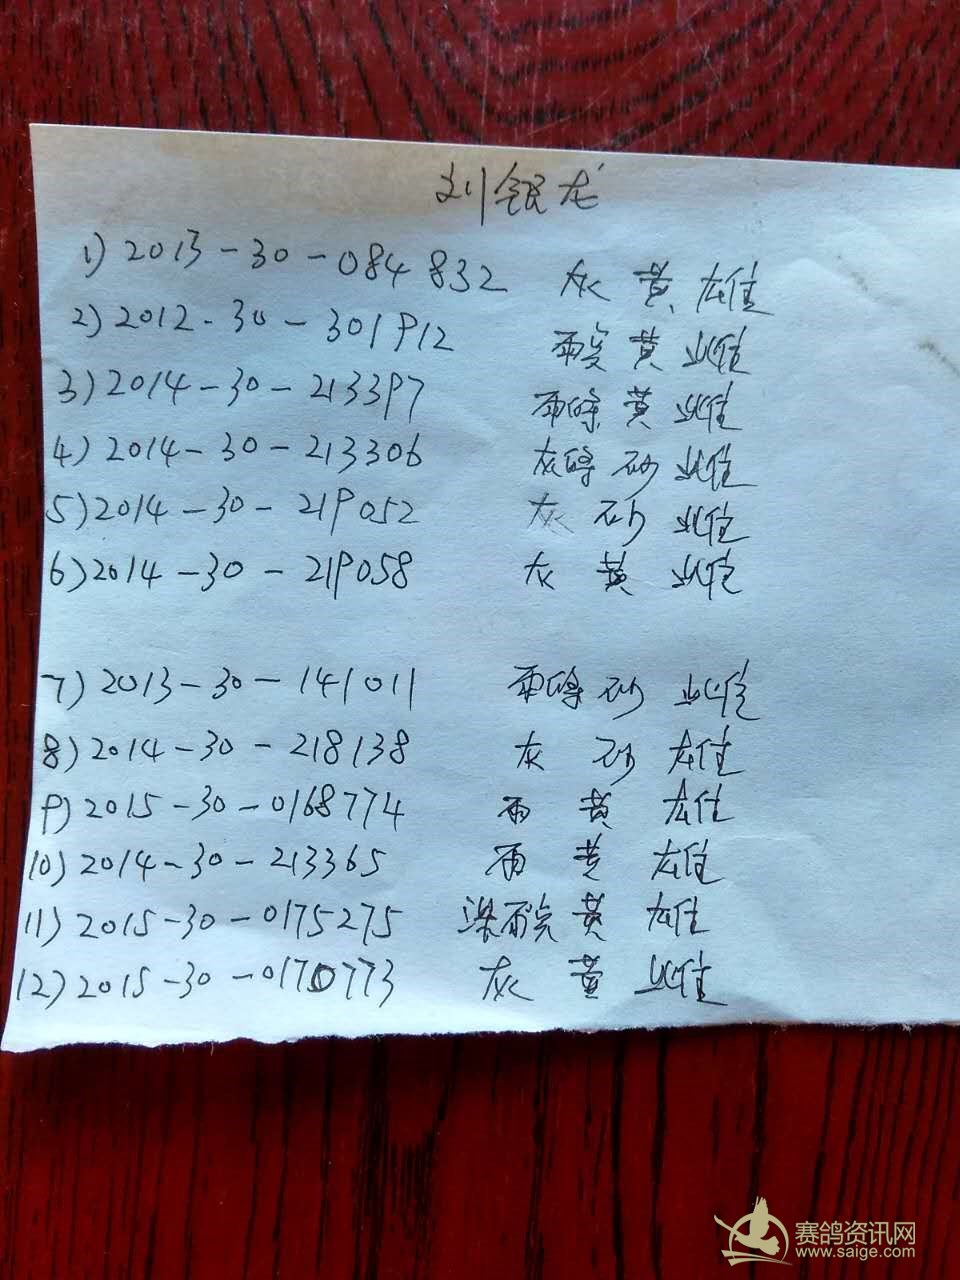 刘银龙
1) 2013-30-084832 灰 黄 雄
2) 2012-30-301912 雨 黄 雌
3) 2014-30-213397 雨條 黄 雌
4) 2014-30-213306 灰條 砂 雌
5) 2014-30-219052 灰 砂 雌
6) 2014-30-219058 灰 黄 雌
7) 2013-30-141011 雨條 砂 雌
8) 2014-30-218138 灰 砂 雄
9) 2015-30-0168774 雨 黄 雄
10) 2014-30-213365 雨 黄 雄
11) 2015-30-0175275 黄 雄
12) 2015-30-0170773 灰 黄 雌
赛鸽资讯网
www.saige.com